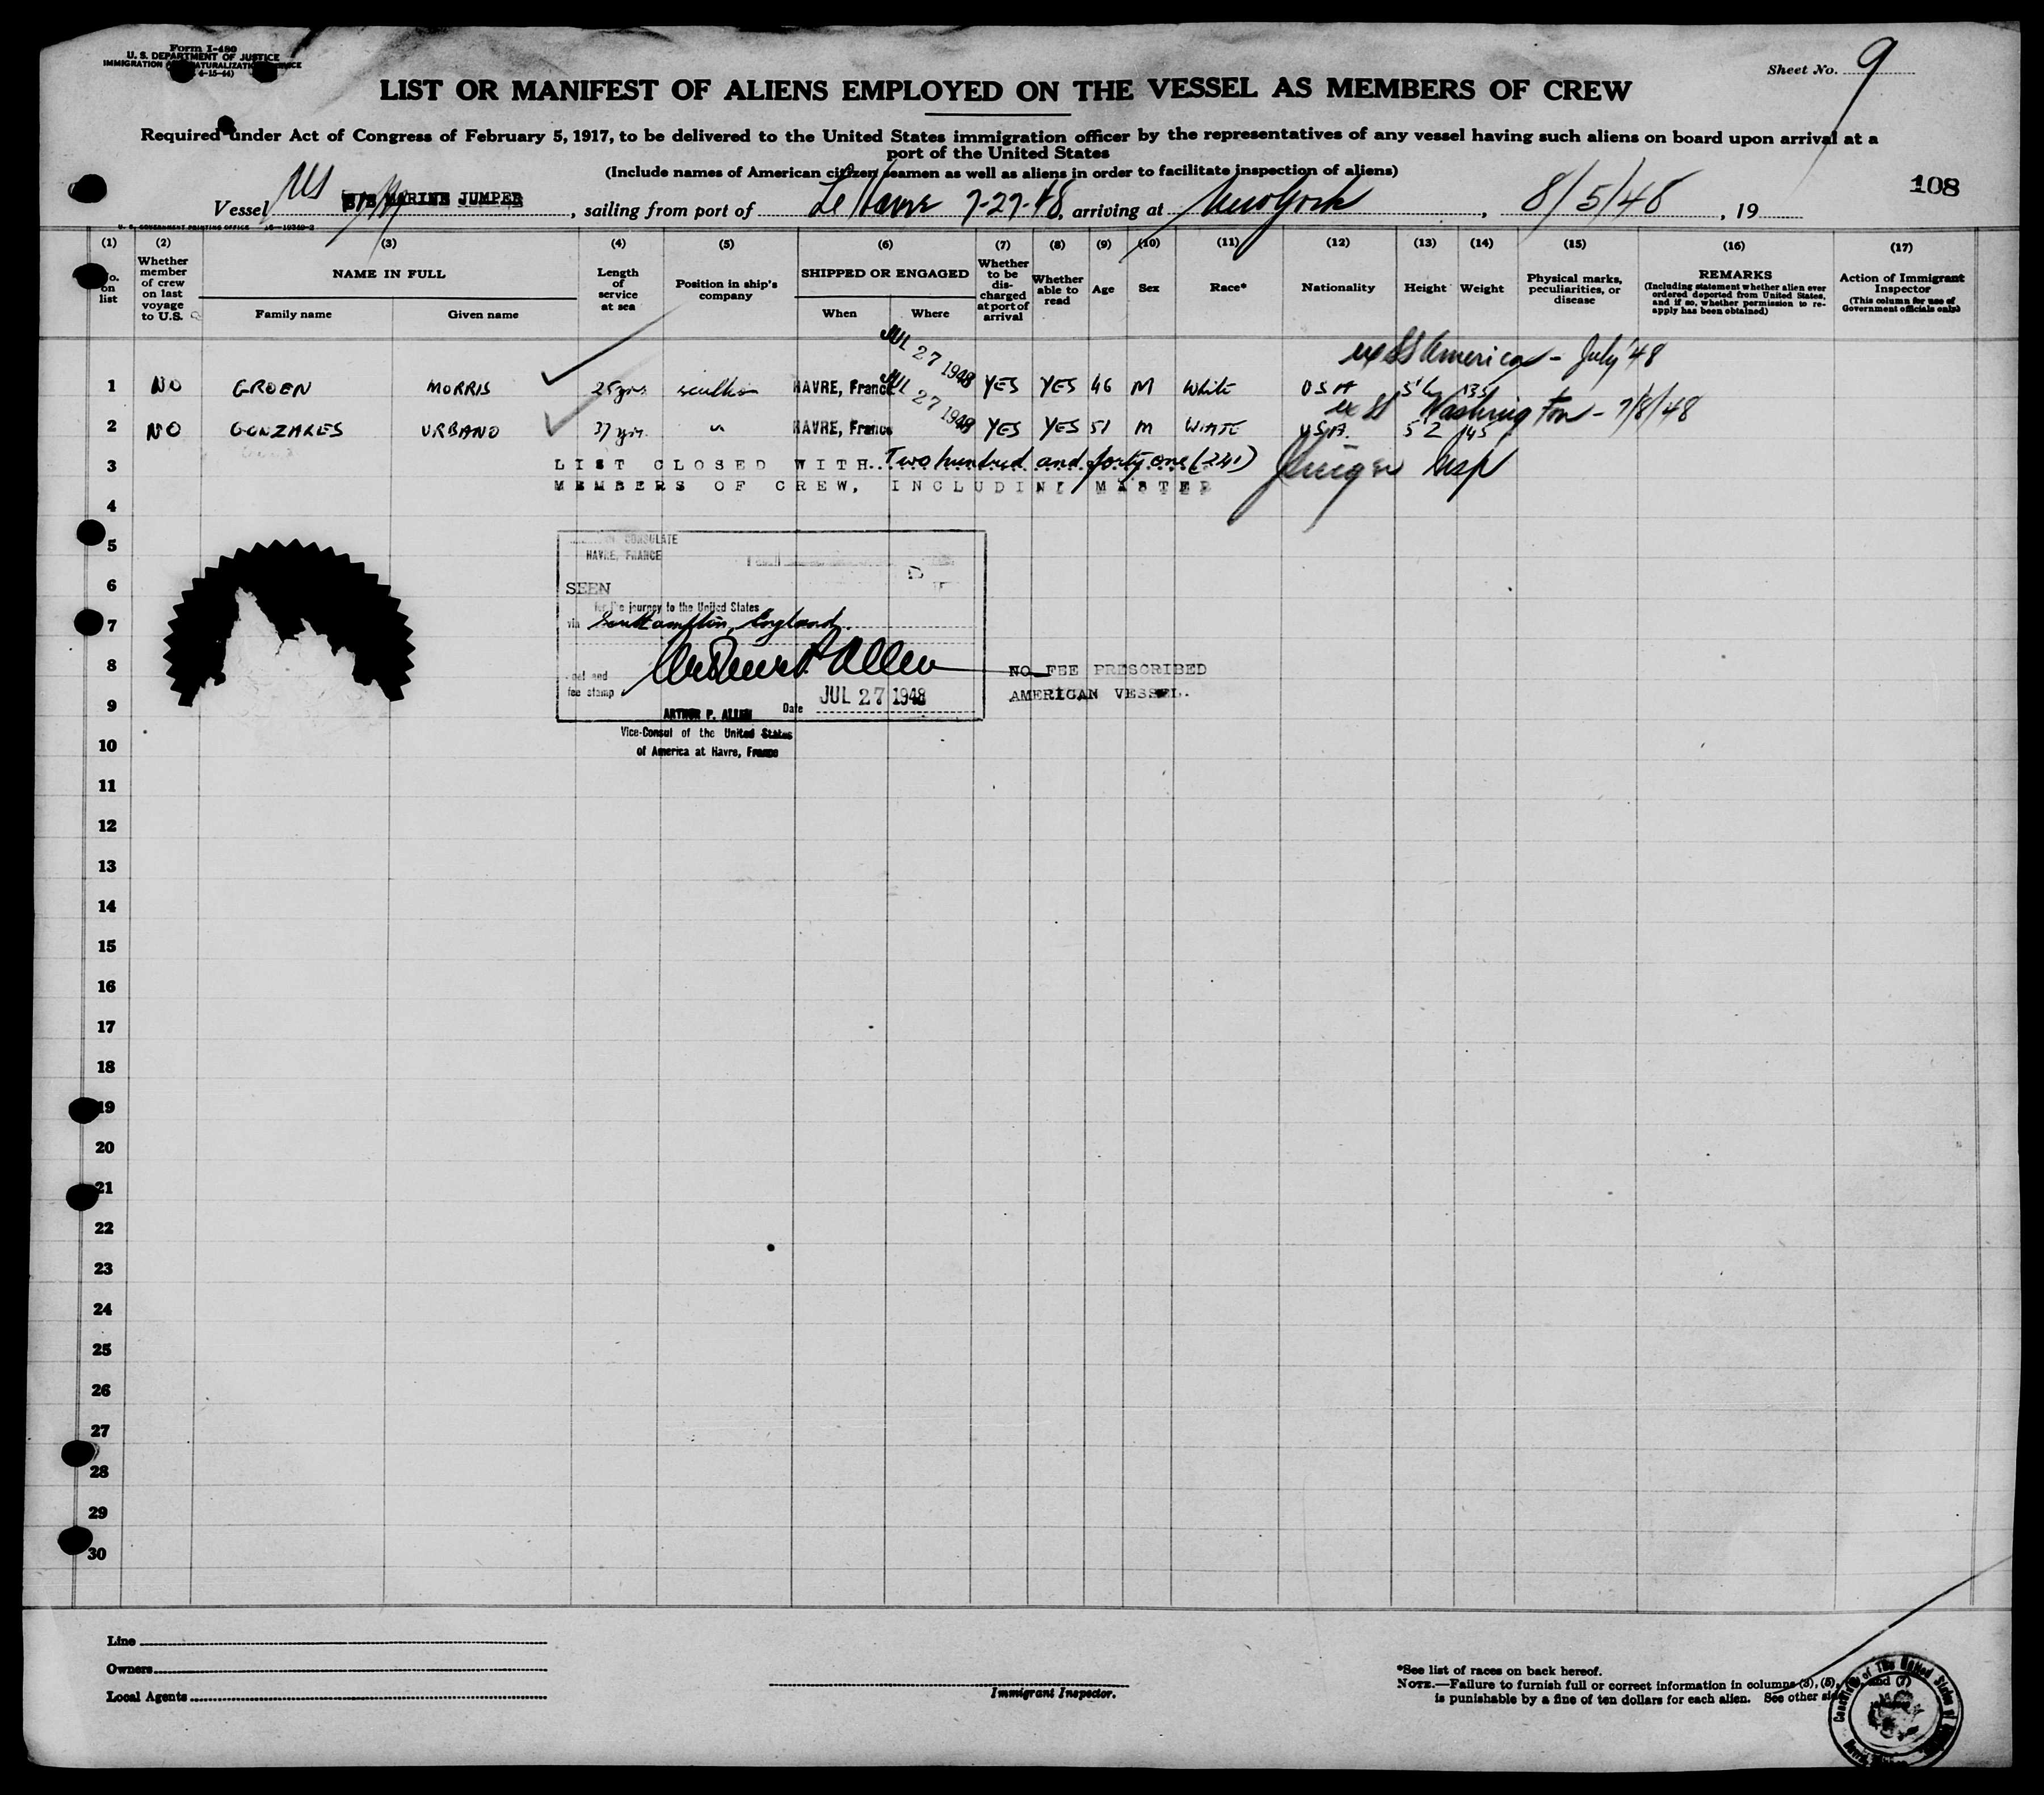 Form I-480
U. S. DEPARTMENT OF JUSTICE
IMMIGRATION
4-15-44)
Sheet No. 9
LIST OR MANIFEST OF ALIENS EMPLOYED ON THE VESSEL AS MEMBERS OF CREW
Required under Act of Congress of February 5, 1917, to be delivered to the United States immigration officer by the representatives of any vessel having such aliens on board upon arrival at a
port of the United States
(Include names of American citizen seamen as well as aliens in order to facilitate inspection of aliens)
108
Vessel MARINE JUMPER, sailing from port of Le Havre 7-27-48, arriving at New York, 8/5/48, 19
U. S. GOVERNMENT PRINTING OFFICE
(1) (2) (3) (4) (5) (6) (7) (8) (9) (10) (11) (12) (13) (14) (15) (16) (17)
No. on list
Whether member of crew on last voyage to U.S.
NAME IN FULL
Family name
Given name
Length of service at sea
Position in ship's company
SHIPPED OR ENGAGED
When
Where
Whether to be discharged at port of arrival
Whether able to read
Age
Sex
Race*
Nationality
Height
Weight
Physical marks, peculiarities, or disease
REMARKS
(Including statement whether alien ever ordered deported from United States, and if so, whether permission to reapply has been obtained)
Action of Immigrant Inspector
(This column for use of Government officials only)
JUL 27 1948
ex SS America - July '48
1 NO GROEN MORRIS 25 yrs. HAVRE, France YES YES 46 M White USA 5'6 135
JUL 27 1948
ex SS Washington - 7/8/48
2 NO GONZARES URBANO 37 yrs. " HAVRE, France YES YES 51 M WHITE USA. 5 2 145
3 LIST CLOSED WITH Two hundred and forty one (241)
MEMBERS OF CREW, INCLUDING MASTER
4
5
CONSULATE
HAVRE, FRANCE
6
SEEN
for the journey to the United States
7
via Southampton, England
8
NO FEE PRESCRIBED
fee stamp
AMERICAN VESSEL.
9
Date JUL 27 1948
ARTHUR P. ALLEN
Vice-Consul of the United States
10
of America at Havre, France
11
12
13
14
15
16
17
18
19
20
21
22
23
24
25
26
27
28
29
30
Line
Owners
Local Agents
Immigrant Inspector.
*See list of races on back hereof.
NOTE.—Failure to furnish full or correct information in columns (3), (5), and (7)
is punishable by a fine of ten dollars for each alien. See other